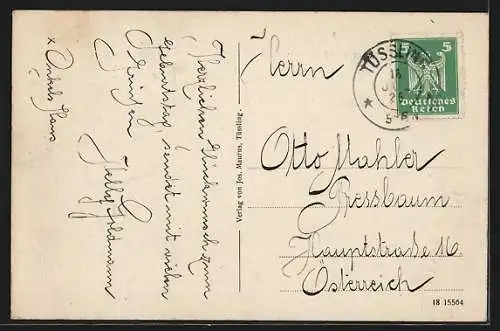 Herzlichen Glückwunsch zum
Geburtstag, sendet mit vielen
Grüßen
x Onkels Hans
Verlag von Jos. Maurus, Tüssling.
Herrn
Otto Mahler
Pressbaum
Hauptstraße 16
Österreich
TÜSSLING
5
Deutsches
Reich
18 15564